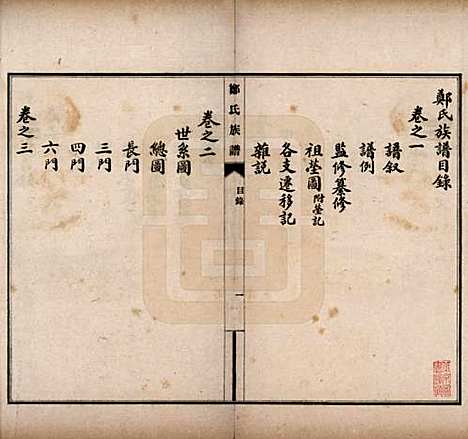 鄭氏族譜目錄
卷之一
譜叙
譜例
監修纂修
祖塋圖附塋記
各支遷移記
雜説
鄭氏族譜
目錄
一
卷之二
世系圖
總圖
長門
三門
四門
六門
卷之三